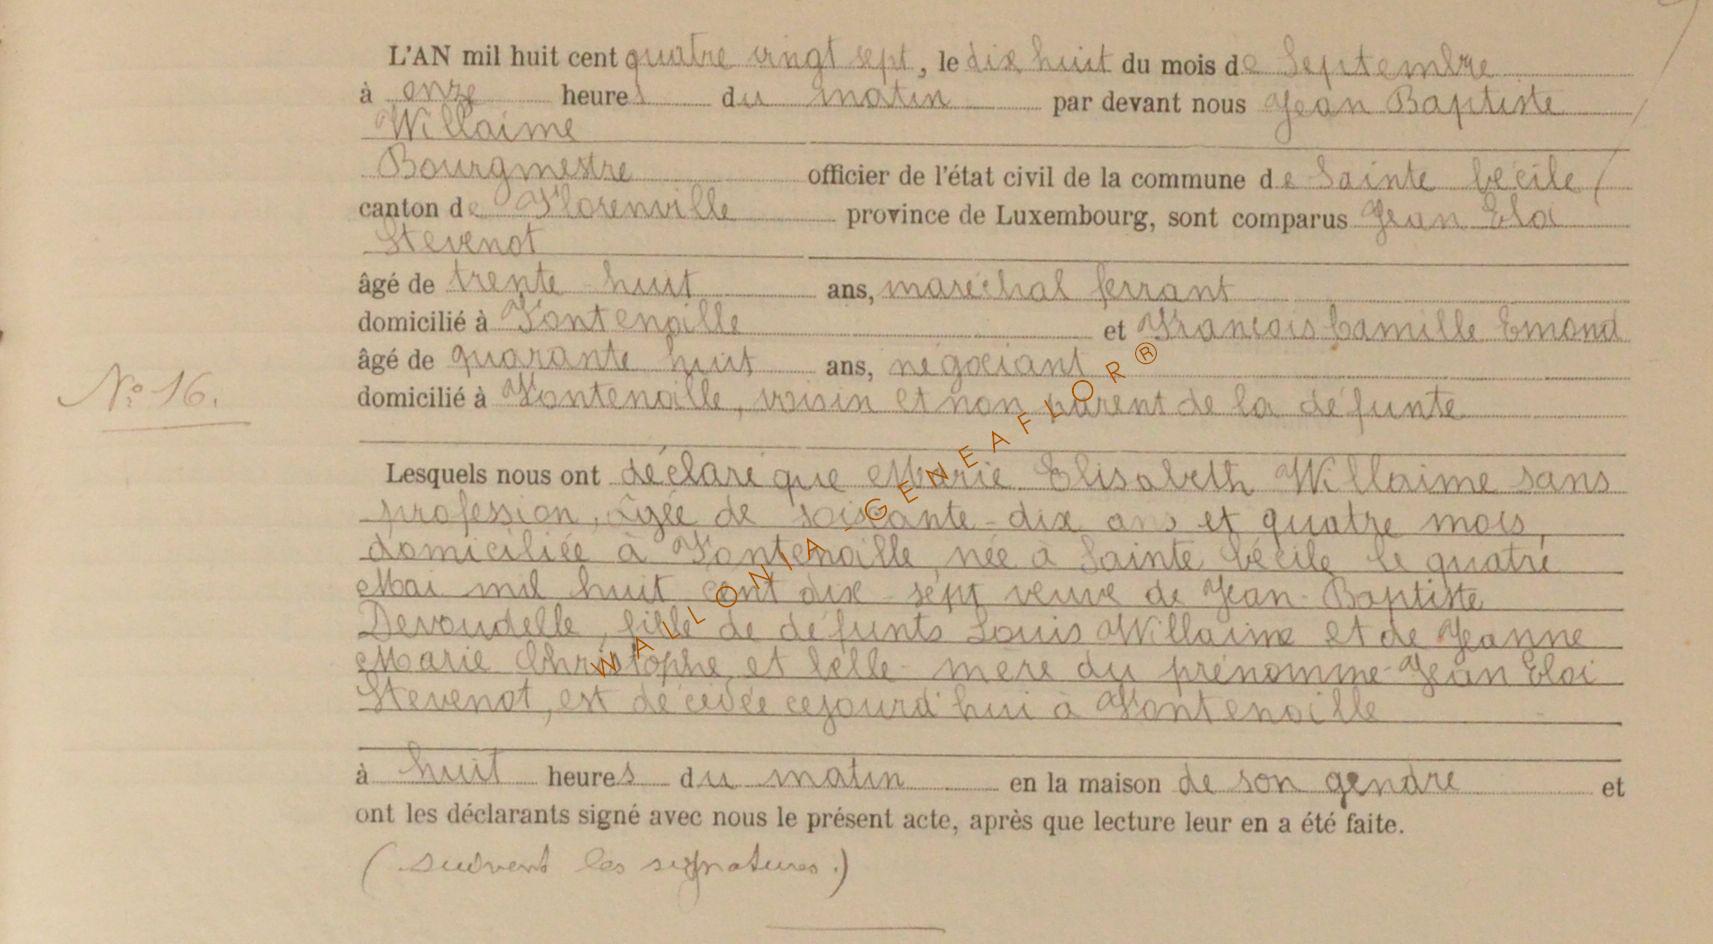 L'AN mil huit cent quatre vingt sept, le dix huit du mois de Septembre
à onze heures du matin par devant nous Jean Baptiste
Willaime
Bourgmestre officier de l'état civil de la commune de Sainte Cécile
canton de Florenville province de Luxembourg, sont comparus Jean Eloi
Stevenot
âgé de trente huit ans, maréchal ferrant
domicilié à Fontenoille et Francois Camille Emond
âgé de quarante huit ans, négociant
domicilié à Fontenoille, voisin et non parent de la défunte
N° 16.
Lesquels nous ont déclaré que Marie Elisabeth Willaime sans
profession, âgée de soixante-dix ans et quatre mois,
domiciliée à Fontenoille, née à Sainte Cécile le quatre
Mai mil huit cent dix-sept veuve de Jean-Baptiste
Devoudelle, fille de défunts Louis Willaime et de Jeanne
Marie Christophe et belle-mère du prénommé Jean Eloi
Stevenot, est décédée cejourd'hui à Fontenoille
à huit heures du matin en la maison de son gendre et
ont les déclarants signé avec nous le présent acte, après que lecture leur en a été faite.
(suivent les signatures.)
WALLONIA-GENEAFLOR®